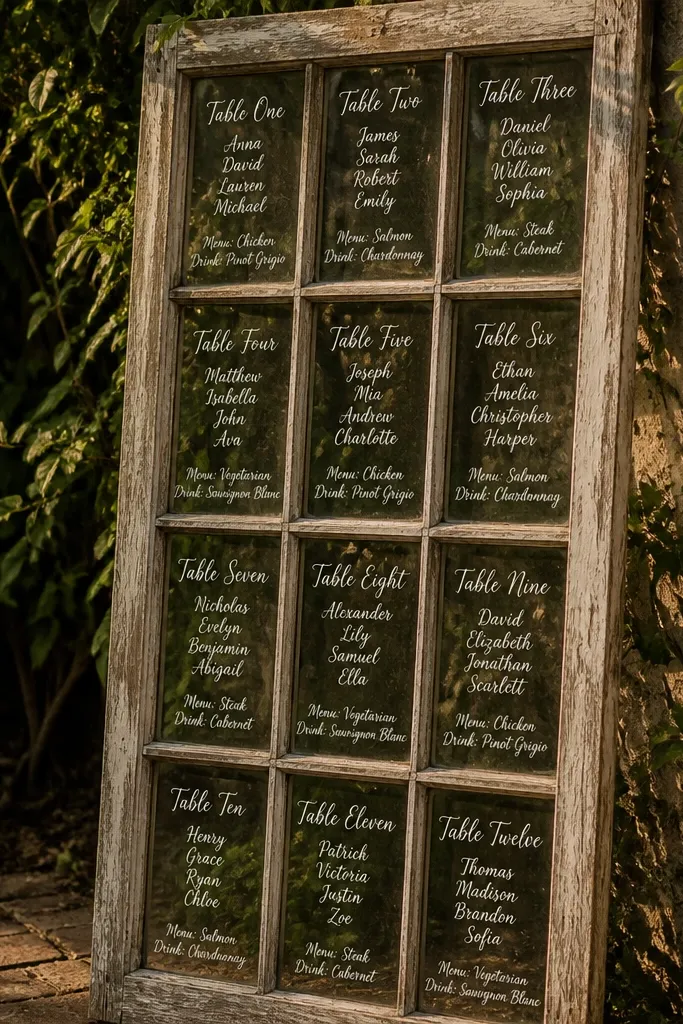 Table One
Anna
David
Lauren
Michael
Menu: Chicken
Drink: Pinot Grigio
Table Two
James
Sarah
Robert
Emily
Menu: Salmon
Drink: Chardonnay
Table Three
Daniel
Olivia
William
Sophia
Menu: Steak
Drink: Cabernet
Table Four
Matthew
Isabella
John
Ava
Menu: Vegetarian
Drink: Sauvignon Blanc
Table Five
Joseph
Mia
Andrew
Charlotte
Menu: Chicken
Drink: Pinot Grigio
Table Six
Ethan
Amelia
Christopher
Harper
Menu: Salmon
Drink: Chardonnay
Table Seven
Nicholas
Evelyn
Benjamin
Abigail
Menu: Steak
Drink: Cabernet
Table Eight
Alexander
Lily
Samuel
Ella
Menu: Vegetarian
Drink: Sauvignon Blanc
Table Nine
David
Elizabeth
Jonathan
Scarlett
Menu: Chicken
Drink: Pinot Grigio
Table Ten
Henry
Grace
Ryan
Chloe
Menu: Salmon
Drink: Chardonnay
Table Eleven
Patrick
Victoria
Justin
Zoe
Menu: Steak
Drink: Cabernet
Table Twelve
Thomas
Madison
Brandon
Sofia
Menu: Vegetarian
Drink: Sauvignon Blanc